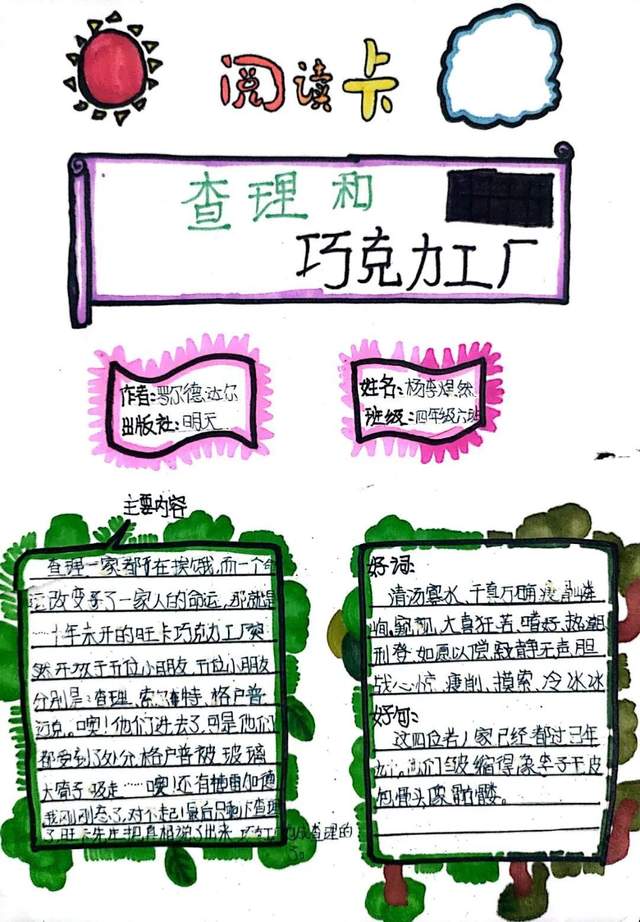 阅读卡
查理和
巧克力工厂
作者:罗尔德·达尔
出版社:明天
姓名:杨李焜然
班级:四年级六班
主要内容
查理一家都在挨饿,而一个
改变了一家人的命运,那就是
……十年未开的旺卡巧克力工厂突
然开放于五位小朋友,五位小朋友
分别是:查理、索尔特、格户普
迈克。噢!他们进去了,可是他们
都受到了处分,格户普被玻璃
大管子吸走……噢!还有
我刚刚念了,对不起!最后只剩下查理
了旺卡先生把真相说了出来,
查理的
了。
好词:
清汤寡水、千真万确
窥视、大喜若狂、嗜好、热潮
如愿以偿、寂静无声、胆
战心惊、瘦削、摸索、冷冰冰
好句:
这四位老人家已经都过
他们皱缩得象李子干皮
包骨头象骷髅。